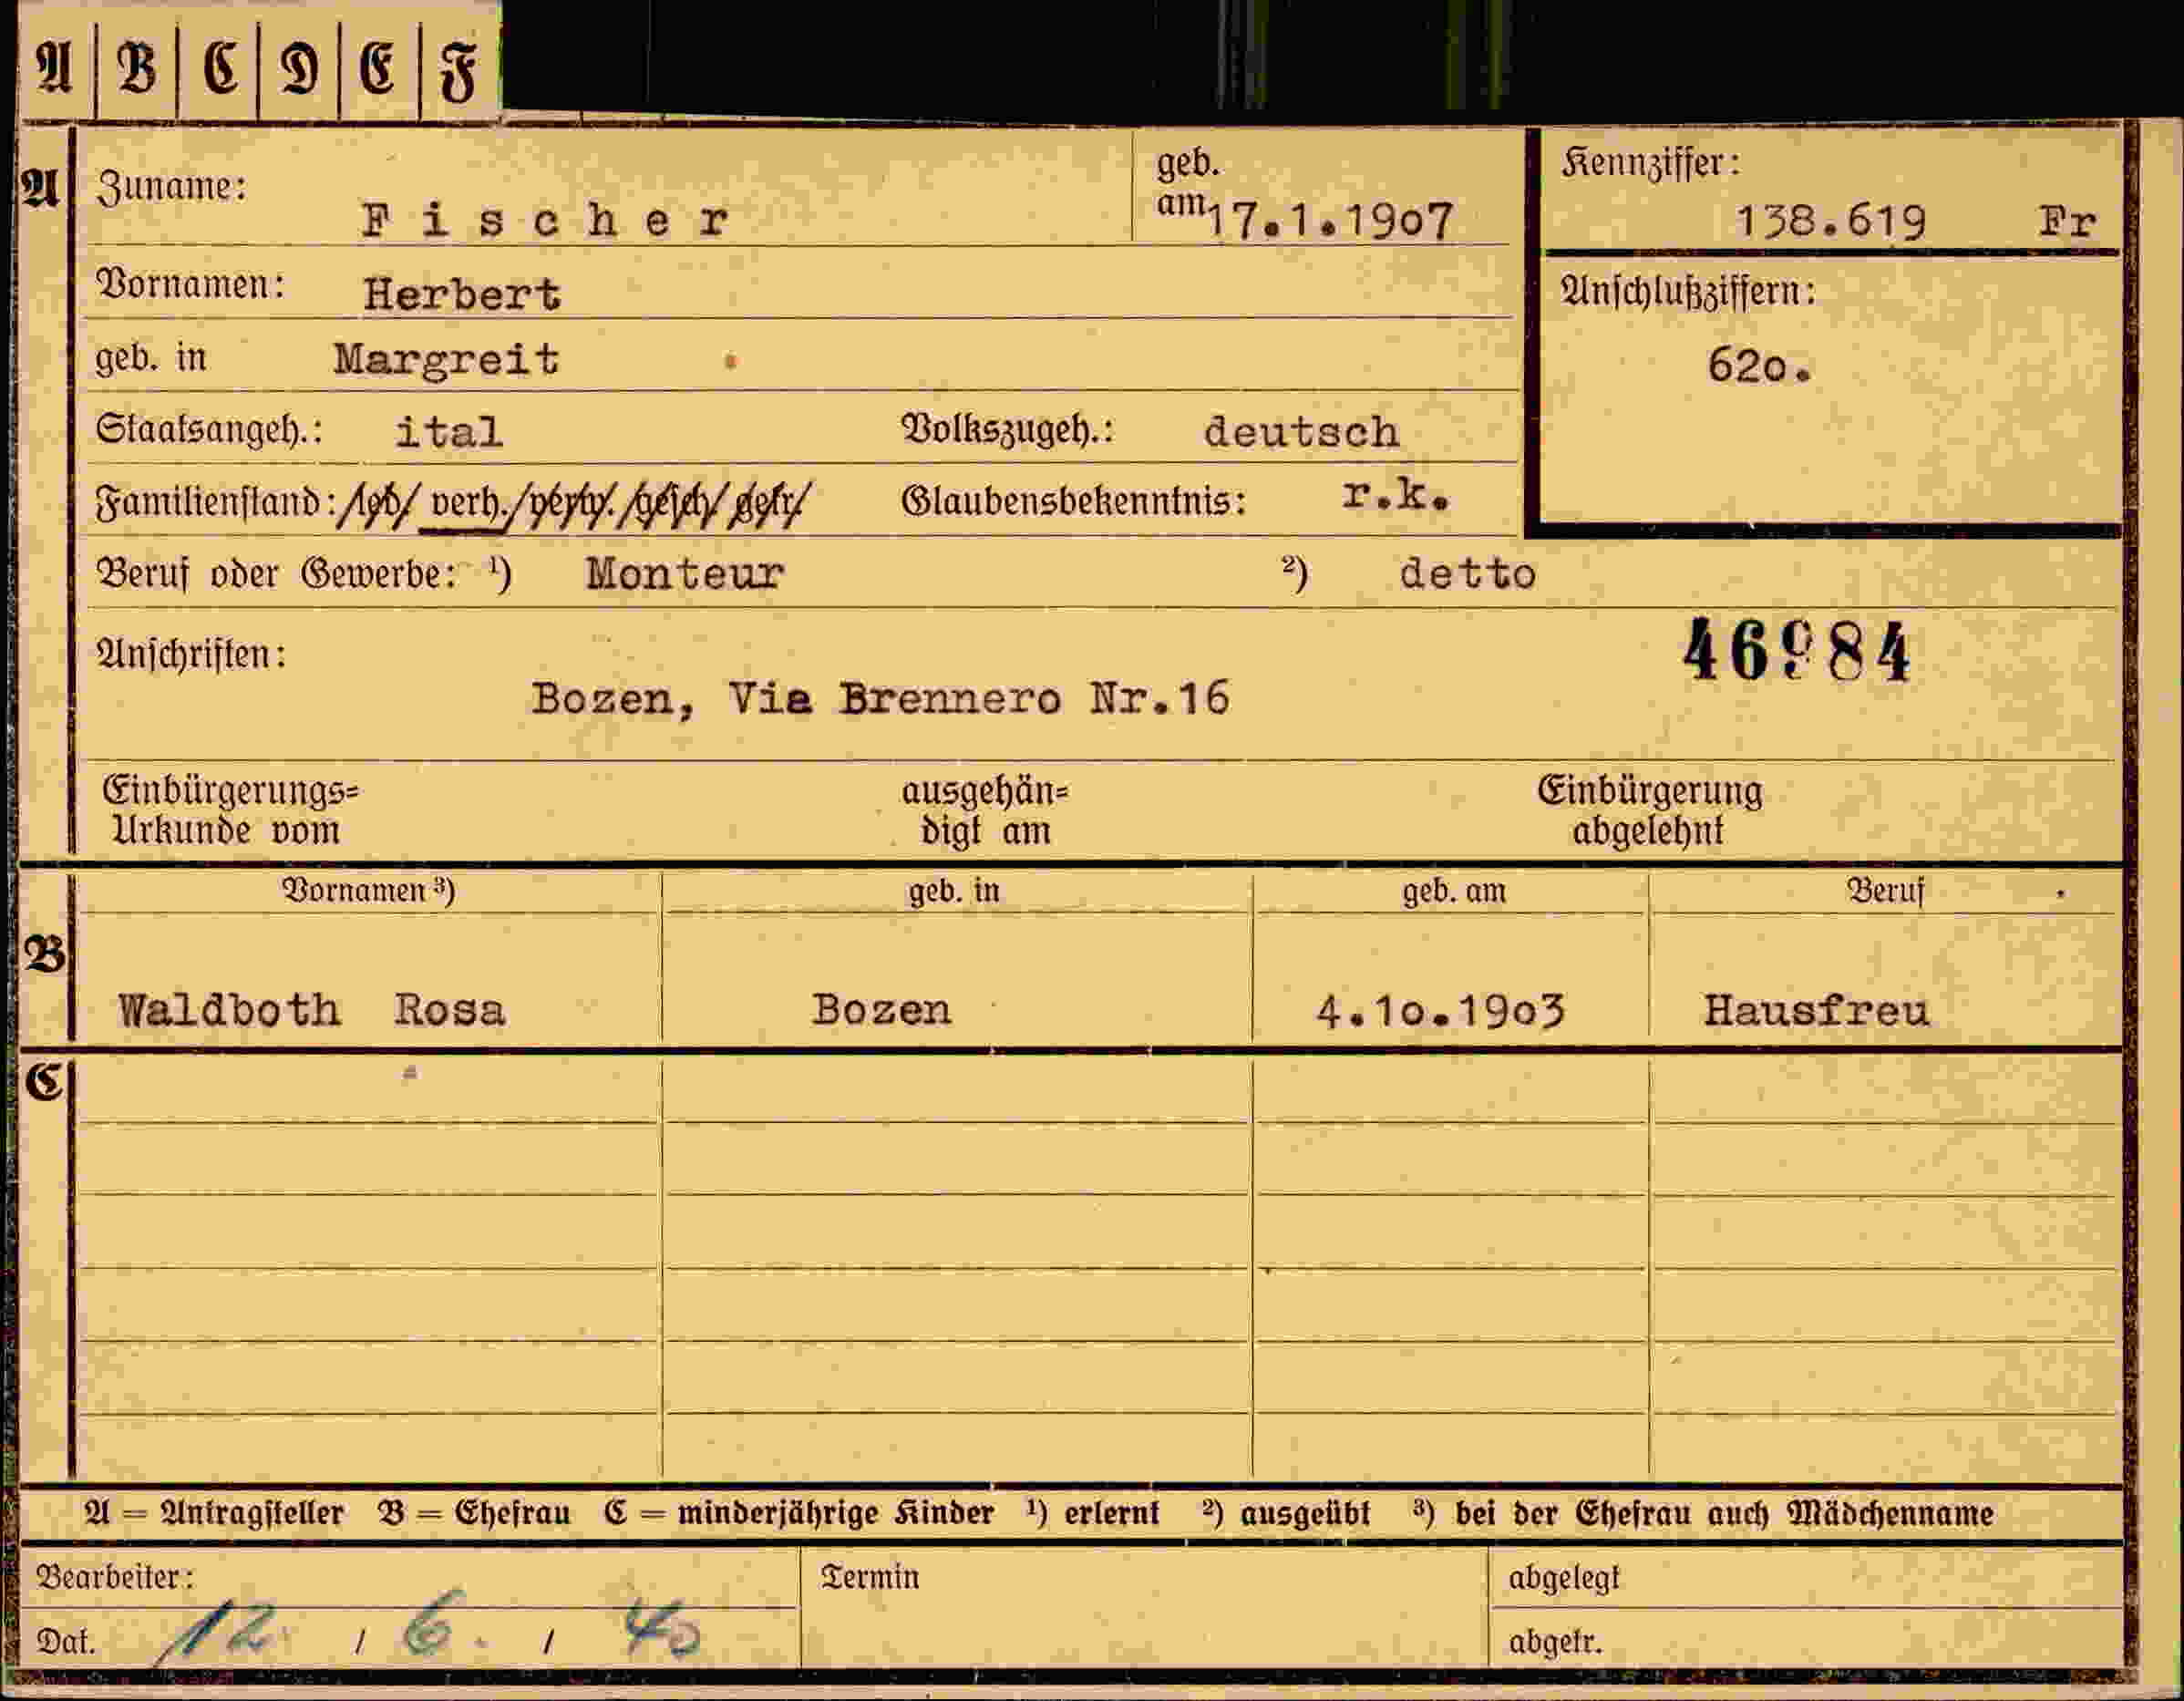 A B C D E F
A
Zuname: Fischer
geb. am 17.1.1907
Kennziffer:
138.619 Fr
Vornamen: Herbert
Anschlußziffern:
620.
geb. in Margreit
Staatsangeh.: ital Volkszugeh.: deutsch
Familienstand: /led/ verh./verw./gesch/getr/ Glaubensbekenntnis: r.k.
Beruf oder Gewerbe: ¹) Monteur ²) detto
46984
Anschriften:
Bozen, Via Brennero Nr.16
Einbürgerungs= ausgehän= Einbürgerung
Urkunde vom digt am abgelehnt
B
Vornamen ³) geb. in geb. am Beruf
Waldboth Rosa Bozen 4.10.1903 Hausfreu
C
A = Antragsteller B = Ehefrau C = minderjährige Kinder ¹) erlernt ²) ausgeübt ³) bei der Ehefrau auch Mädchenname
Bearbeiter: Termin abgelegt
Dat. 12. / 6. / 40 abgetr.